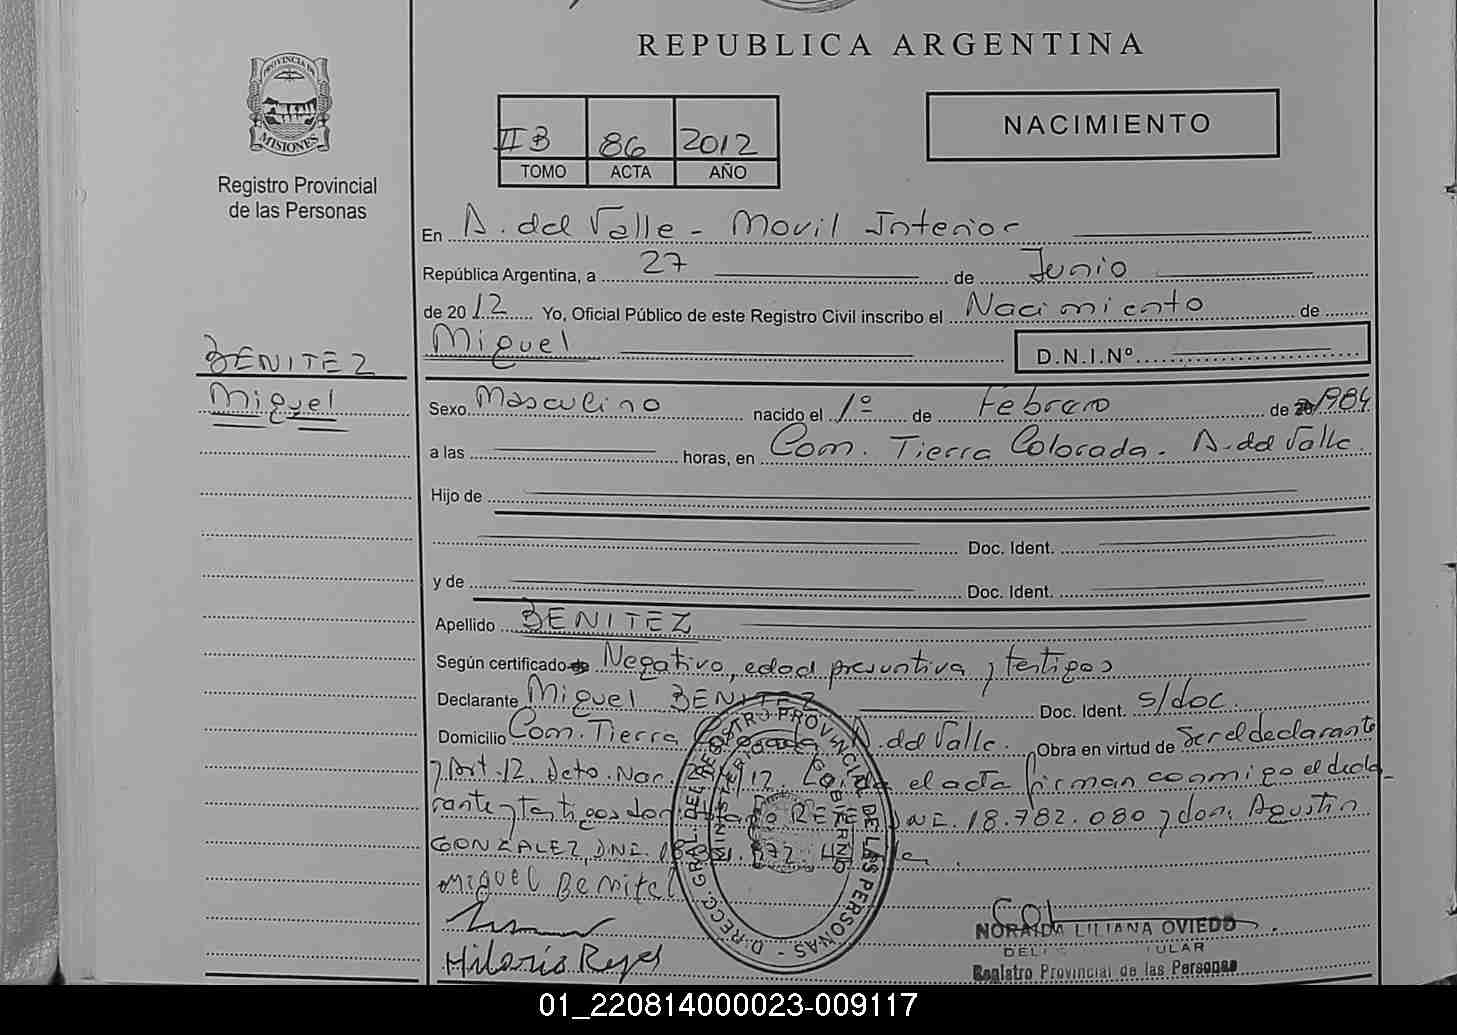 REPUBLICA ARGENTINA
PROVINCIA DE
MISIONES
Registro Provincial
de las Personas
II B 86 2012
TOMO ACTA AÑO
NACIMIENTO
En A. del Valle - Movil Interior
República Argentina, a 27 de Junio
de 2012 Yo, Oficial Público de este Registro Civil inscribo el Nacimiento de
Miguel D.N.I.Nº
BENITEZ
Miguel
Sexo Masculino nacido el 1º de Febrero de 1984
a las horas, en Com. Tierra Colorada. A. del Valle.
Hijo de
Doc. Ident.
y de Doc. Ident.
Apellido BENITEZ
Según certificado Negativo, edad presuntiva y testigos
Declarante Miguel BENITEZ Doc. Ident. s/doc.
Domicilio Com. Tierra Colorada A. del Valle. Obra en virtud de Ser el declarante
y Art. 12 Dcto. Nac. /12 el acta firman conmigo el decla_
rante y testigos don REYES DNI. 18.782.080 y don: Agustin
GONZALEZ, DNI.
Miguel Benitez
Hilario Reyes
D. RECC. GRAL. DEL REGISTRO PROVINCIAL DE LAS PERSONAS -
MINISTERIO GOBIERNO
NORAIDA LILIANA OVIEDO
Registro Provincial de las Personas
01_220814000023-009117